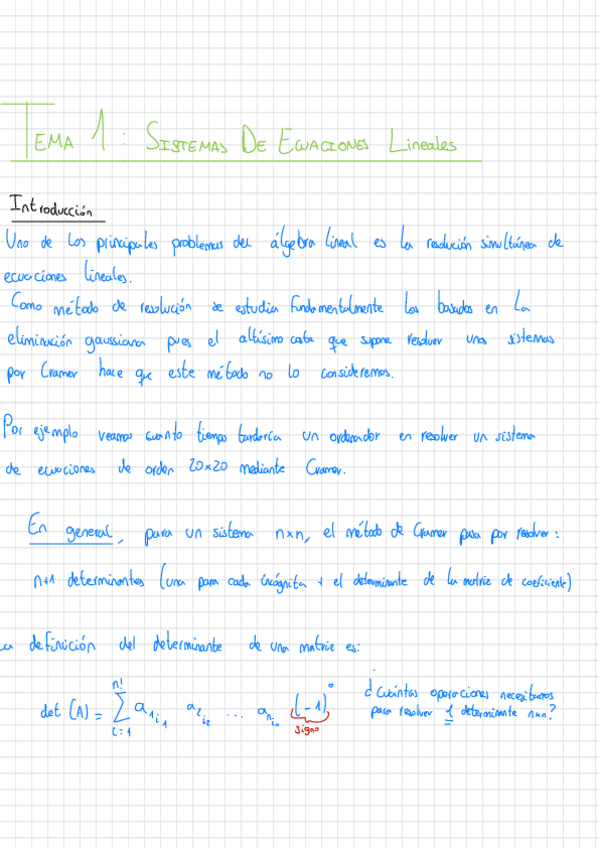 TEMA 1: SISTEMAS DE ECUACIONES Lineales
Introducción
Uno de los principales problemas del álgebra lineal es la resolución simultánea de
ecuaciones lineales.
Como método de resolución se estudia fundamentalmente los basados en la
eliminación gaussiana pues el altísimo coste que supone resolver unos sistemas
por Cramer hace que este método no lo consideremos.
Por ejemplo veamos cuanto tiempo tardaría un ordenador en resolver un sistema
de ecuaciones de orden 20x20 mediante Cramer.
En general, para un sistema nxn, el método de Cramer pasa por resolver:
n+1 determinantes (una para cada incógnita + el determinante de la matriz de coeficiente)
La definición del determinante de una matriz es:
¿Cuántas operaciones necesitamos
para resolver 1 determinante nxn?
det (A) = ∑_{i=1}^{n!} a_{1i_1} a_{2i_2} ... a_{ni_n} (-1)^°
signo